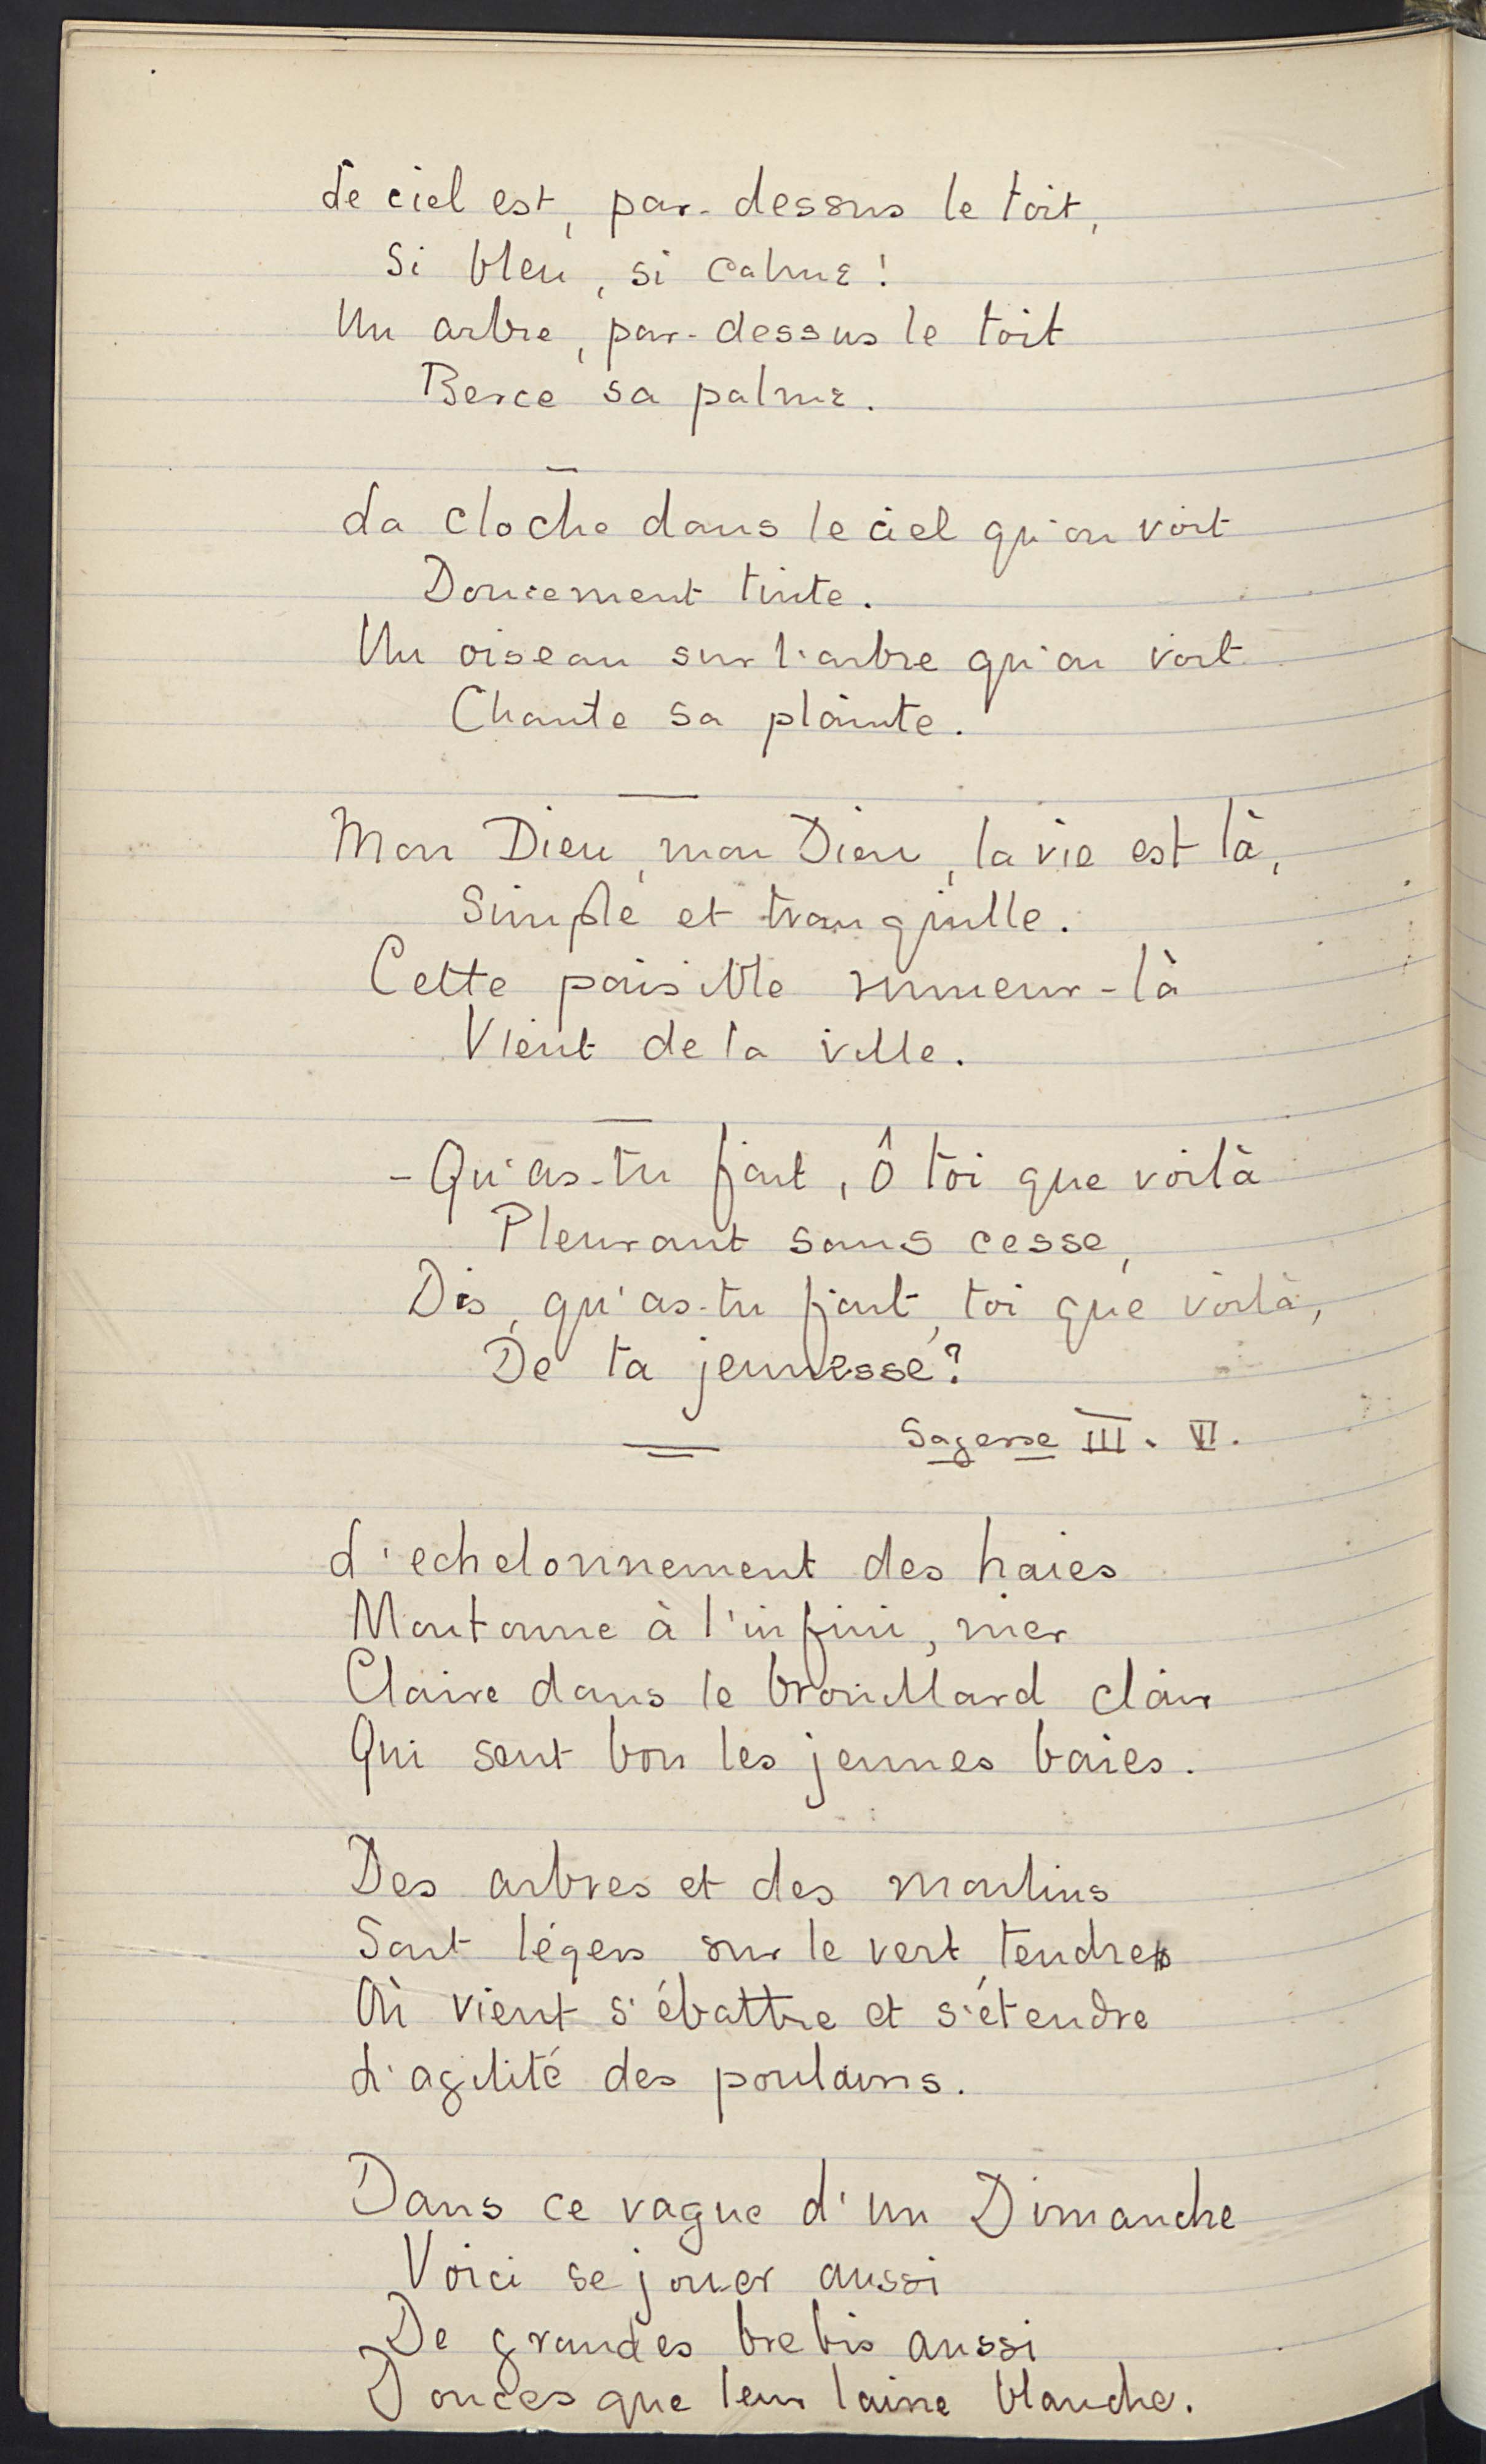 Le ciel est, par-dessus le toit,
Si bleu, si calme!
Un arbre, par-dessus le toit
Berce sa palme.
La cloche dans le ciel qu'on voit
Doucement tinte.
Un oiseau sur l'arbre qu'on voit
Chante sa plainte.
Mon Dieu, mon Dieu, la vie est là,
Simple et tranquille.
Cette paisible rumeur-là
Vient de la ville.
- Qu'as-tu fait, ô toi que voilà
Pleurant sans cesse,
Dis, qu'as-tu fait, toi que voilà,
De ta jeunesse?
Sagesse III. VI.
L'echelonnement des haies
Moutonne à l'infini, mer
Claire dans le brouillard clair
Qui sent bon les jeunes baies.
Des arbres et des moulins
Sont légers sur le vert tendre
Où vient s'ébattre et s'étendre
L'agilité des poulains.
Dans ce vague d'un Dimanche
Voici se jouer aussi
De grandes brebis aussi
Douces que leur laine blanche.